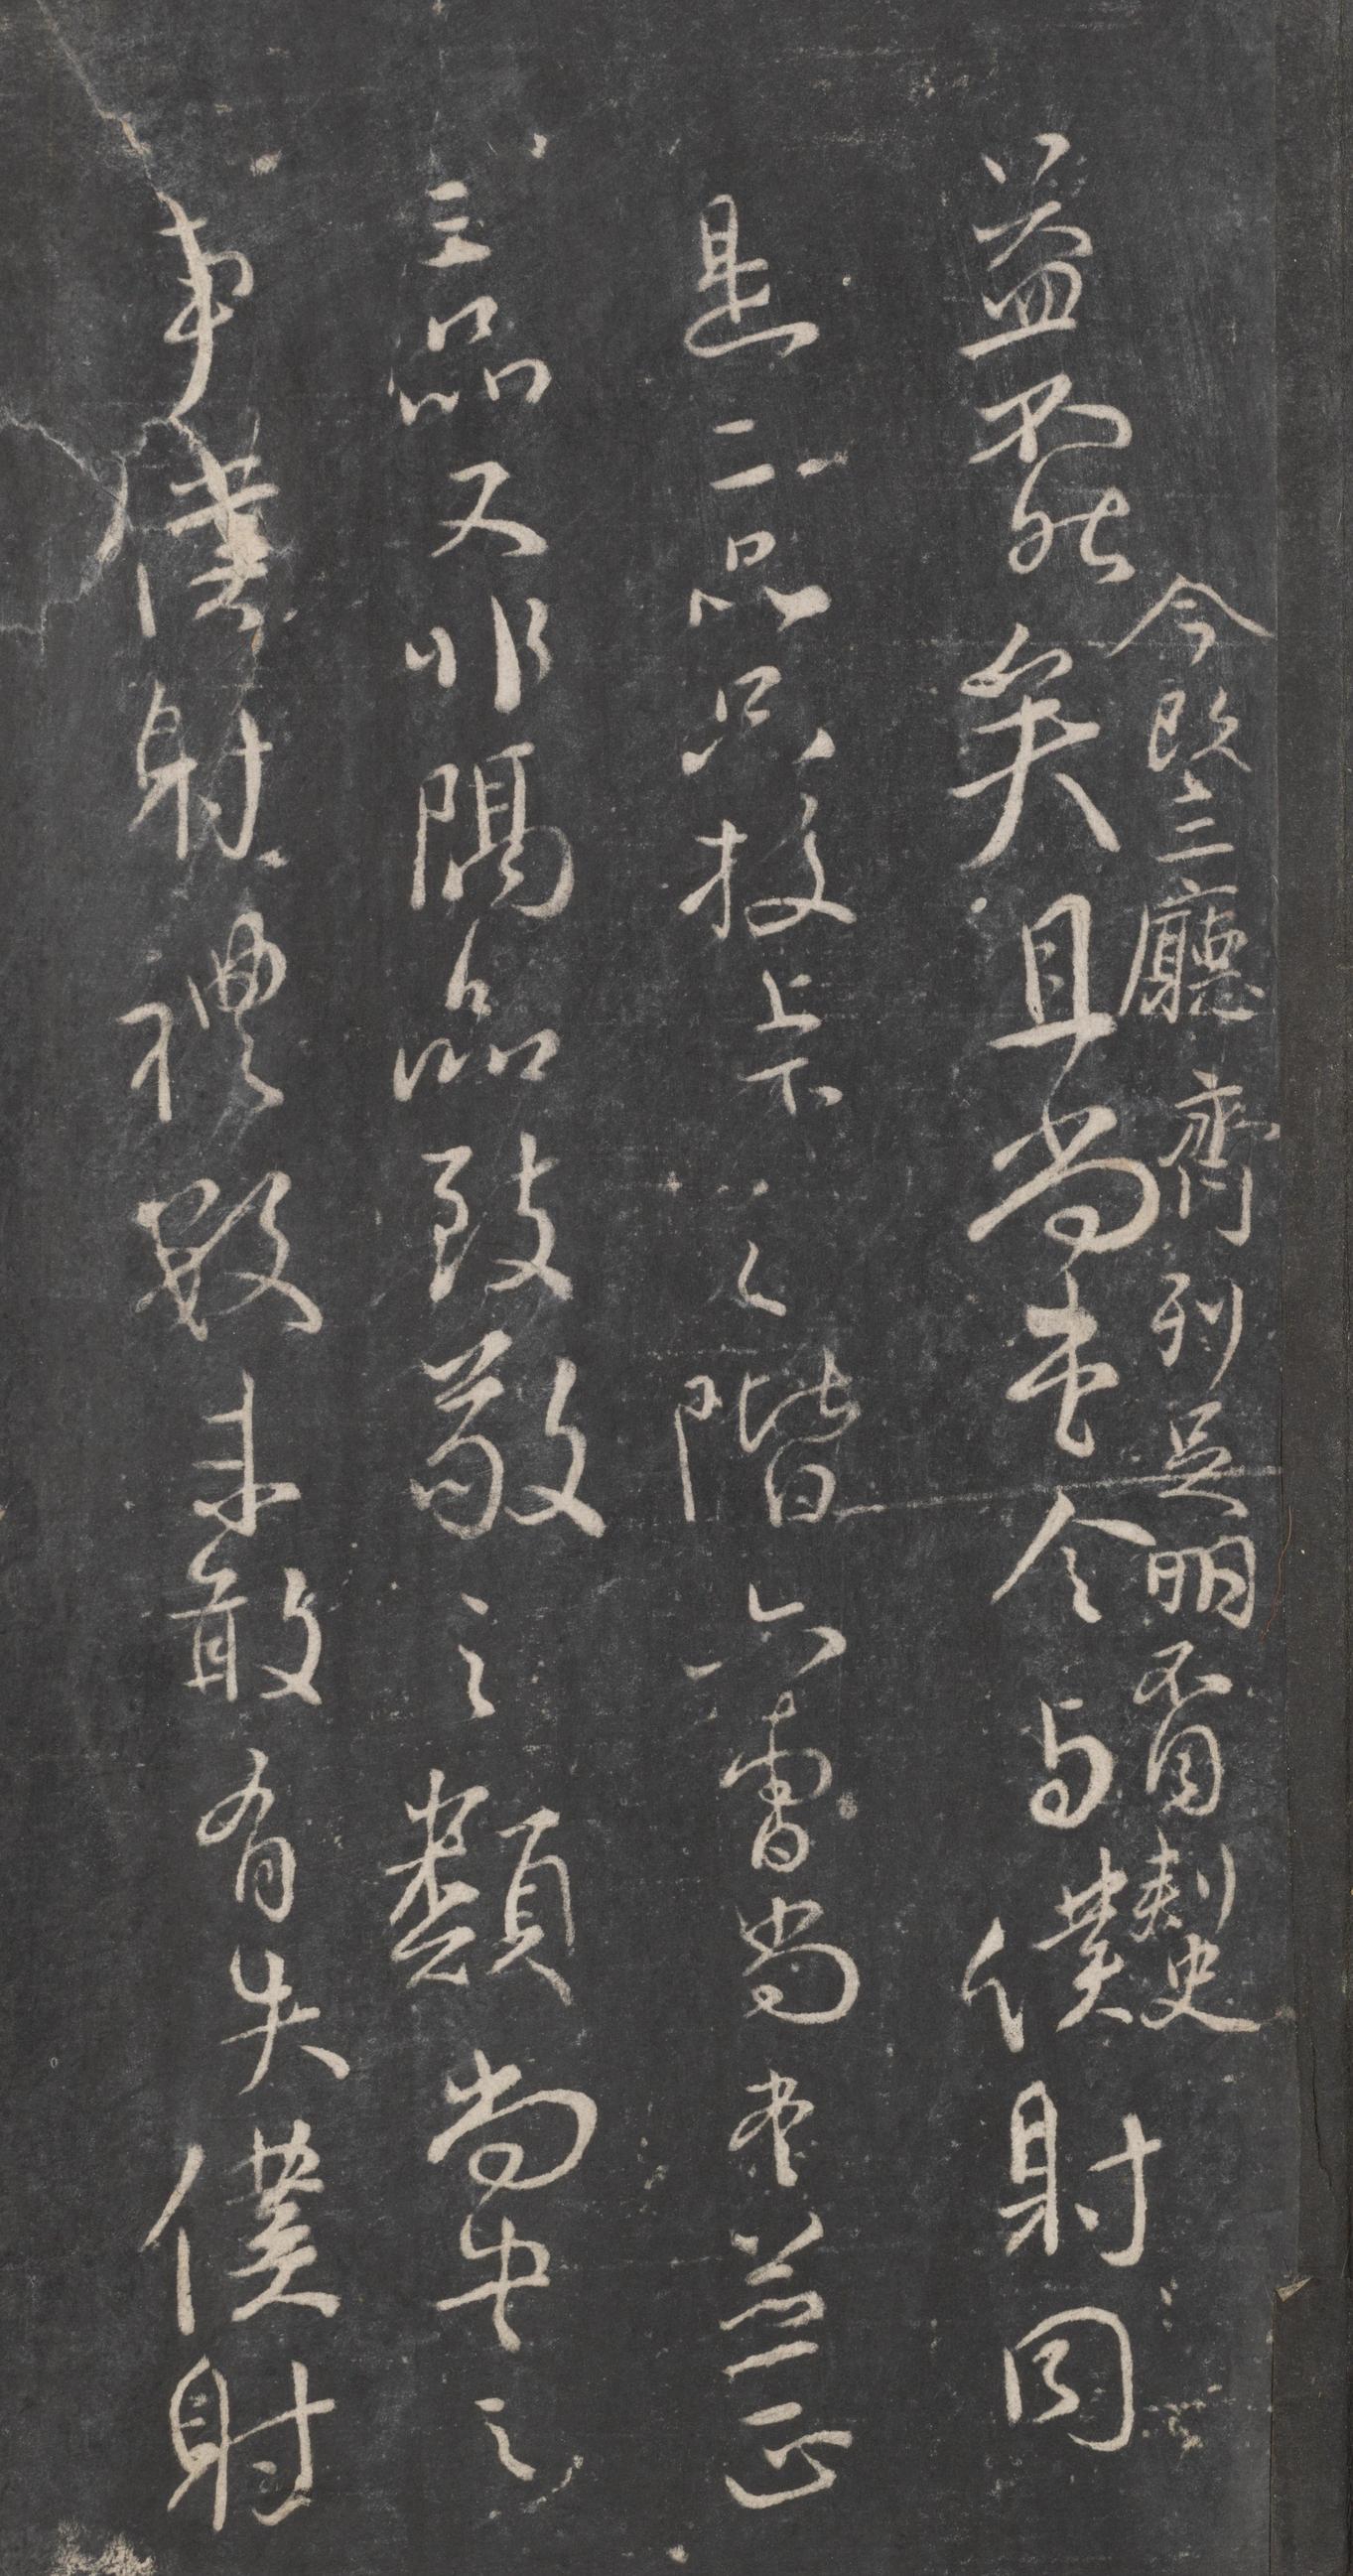 今既三廳齊列足明不同刺史
益不然矣且尚書令与僕射同
是二品只校上下之階六曹尚書並正
三品又非隔品致敬之類尚書之
事僕射禮數未敢有失僕射